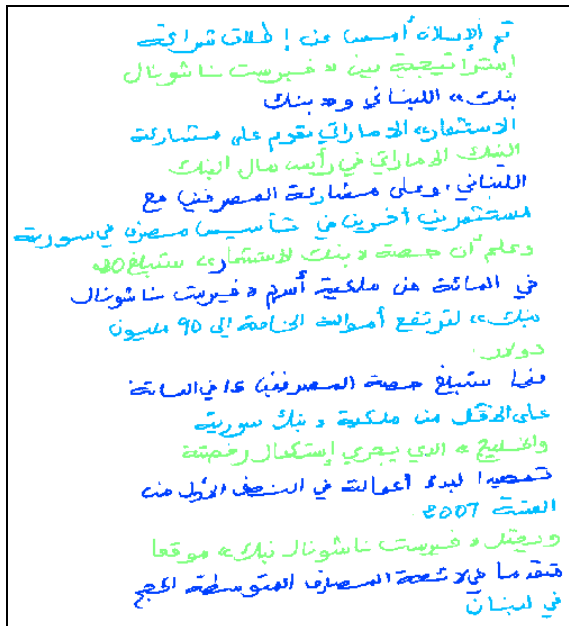 تم الإعلان أمس عن إطلاق شراكة
إستراتيجية بين « فيرست ناشونال
بنك » اللبناني و« بنك
الاستثمار » الاماراتي تقوم على مشاركة
البنك الاماراتي في رأس مال البنك
اللبناني، وعلى مشاركة المصرفين مع
مستثمرين آخرين في تأسيس مصرف في سورية
وعلم أن حصة « بنك الاستثمار » ستبلغ
في المائة من ملكية أسهم « فيرست ناشونال
بنك » لترتفع أمواله الخاصة إلى 90 مليون
دولار.
فيما ستبلغ حصة المصرفين في المائة
على الاقل من ملكية « بنك سورية
والخليج » الذي يجري إستكمال رخصته
تمهيدا لبدء أعماله في النصف الأول من
السنة 2007
ويحتل « فيرست ناشونال بنك » موقعا
متقدما في لائحة المصارف المتوسطة الحجم
في لبنان